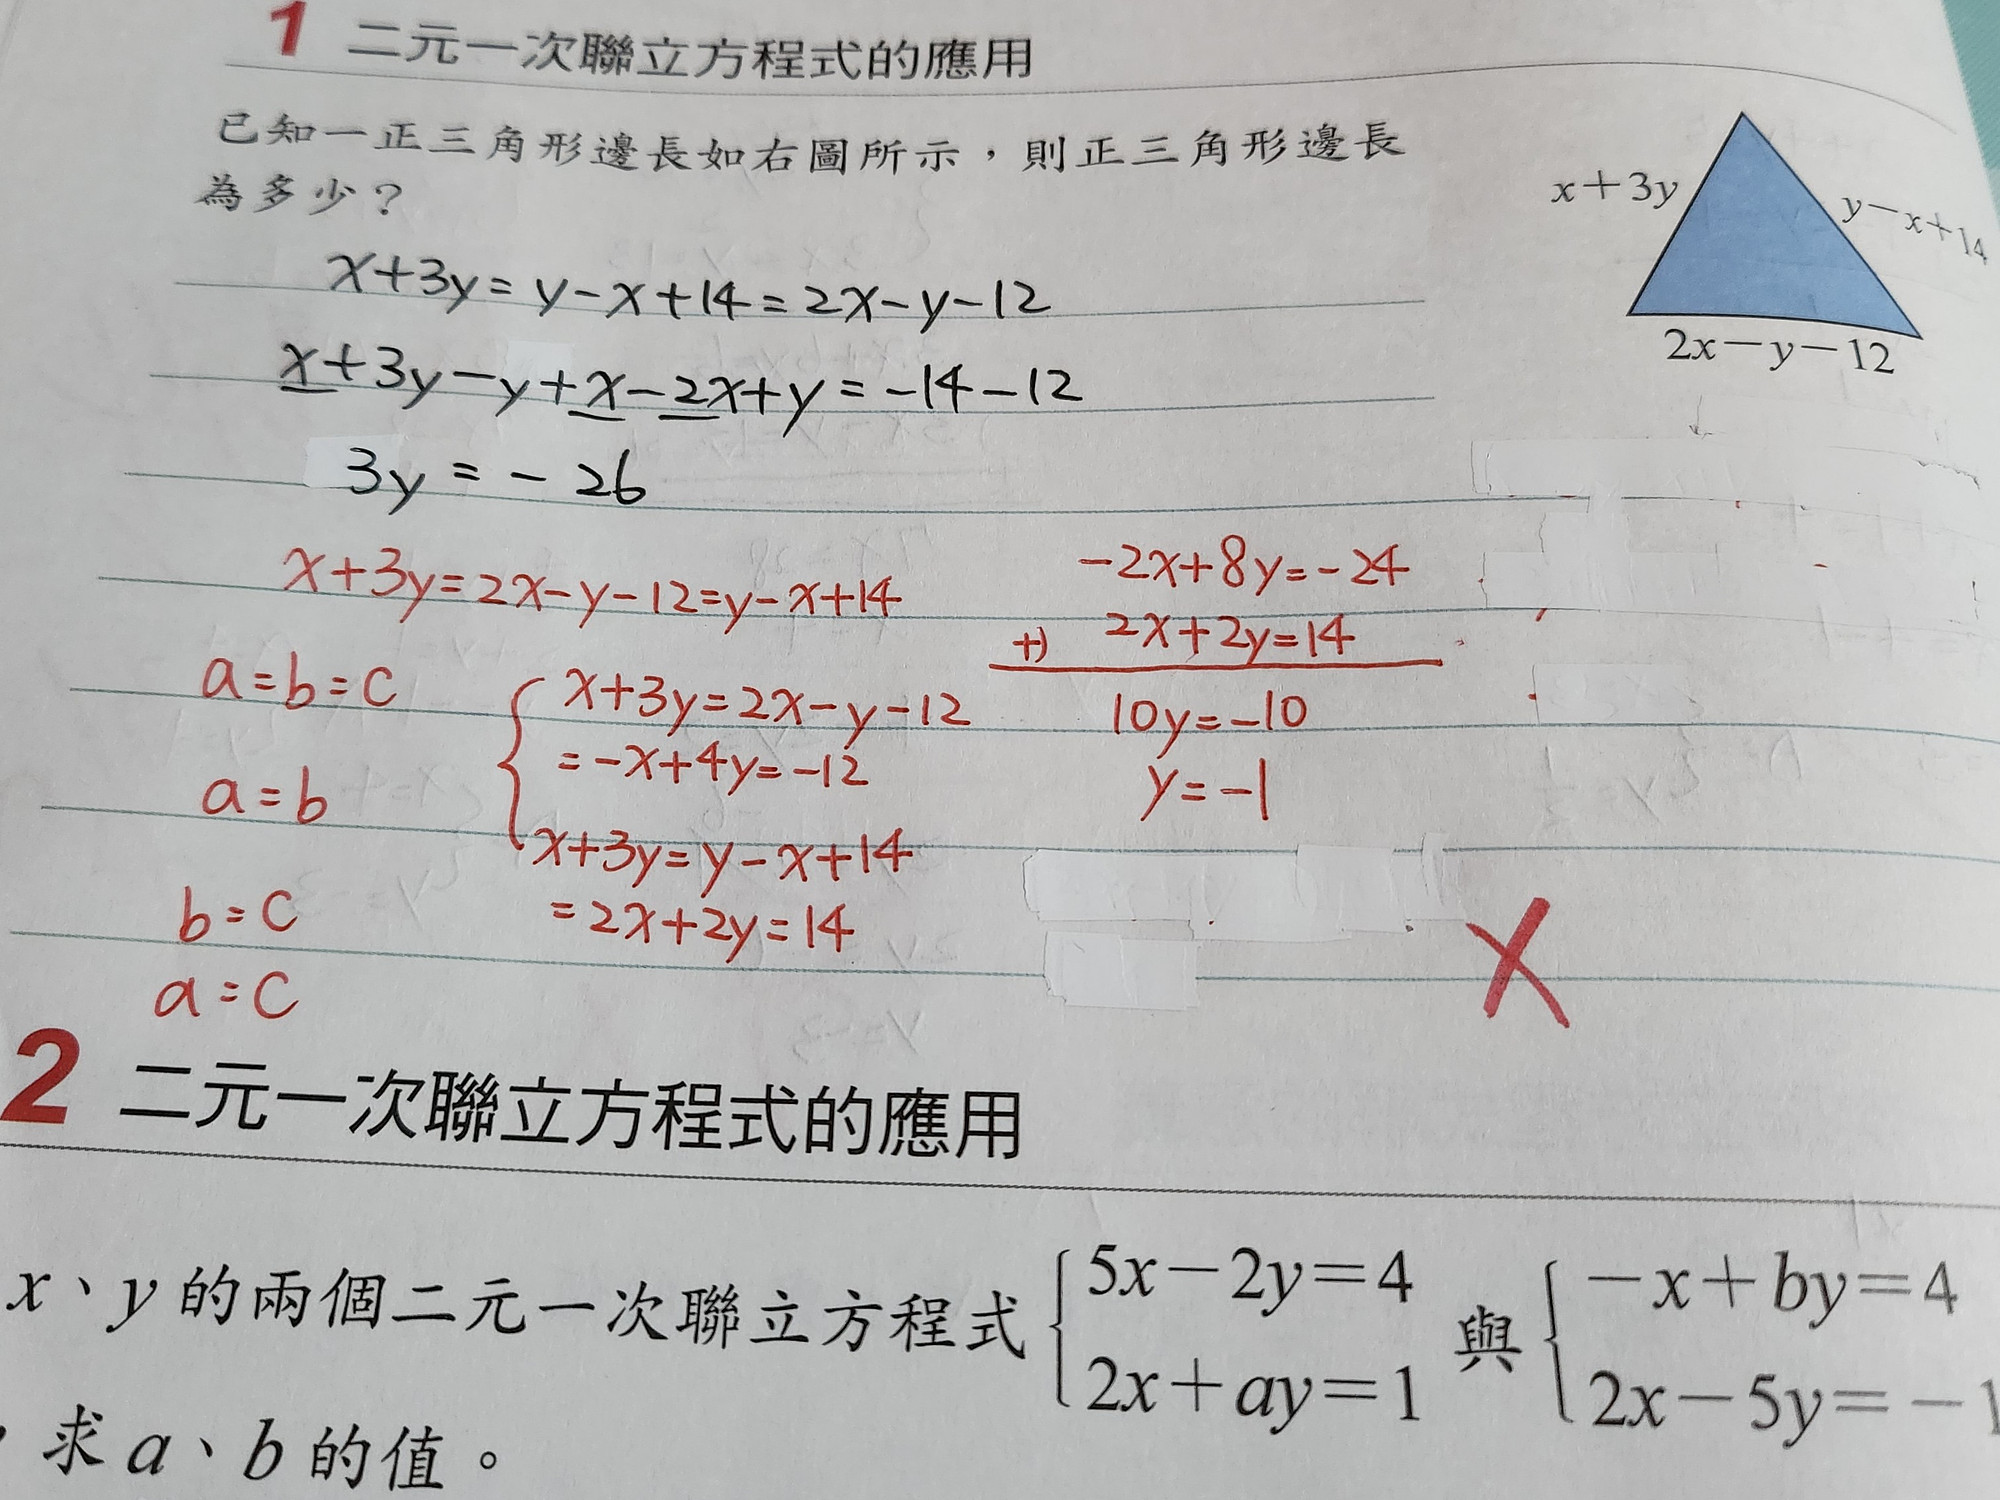 1 二元一次聯立方程式的應用
已知一正三角形邊長如右圖所示，則正三角形邊長
為多少？
x+3y
y-x+14
2x-y-12
x+3y=y-x+14=2x-y-12
x+3y-y+x-2x+y=-14-12
3y=-26
x+3y=2x-y-12=y-x+14
a=b=c
a=b
b=c
a=c
x+3y=2x-y-12
=-x+4y=-12
x+3y=y-x+14
=2x+2y=14
-2x+8y=-24
+) 2x+2y=14
10y=-10
y=-1
X
2 二元一次聯立方程式的應用
x、y的兩個二元一次聯立方程式 { 5x-2y=4 2x+ay=1 與 { -x+by=4 2x-5y=-1
，求a、b的值。